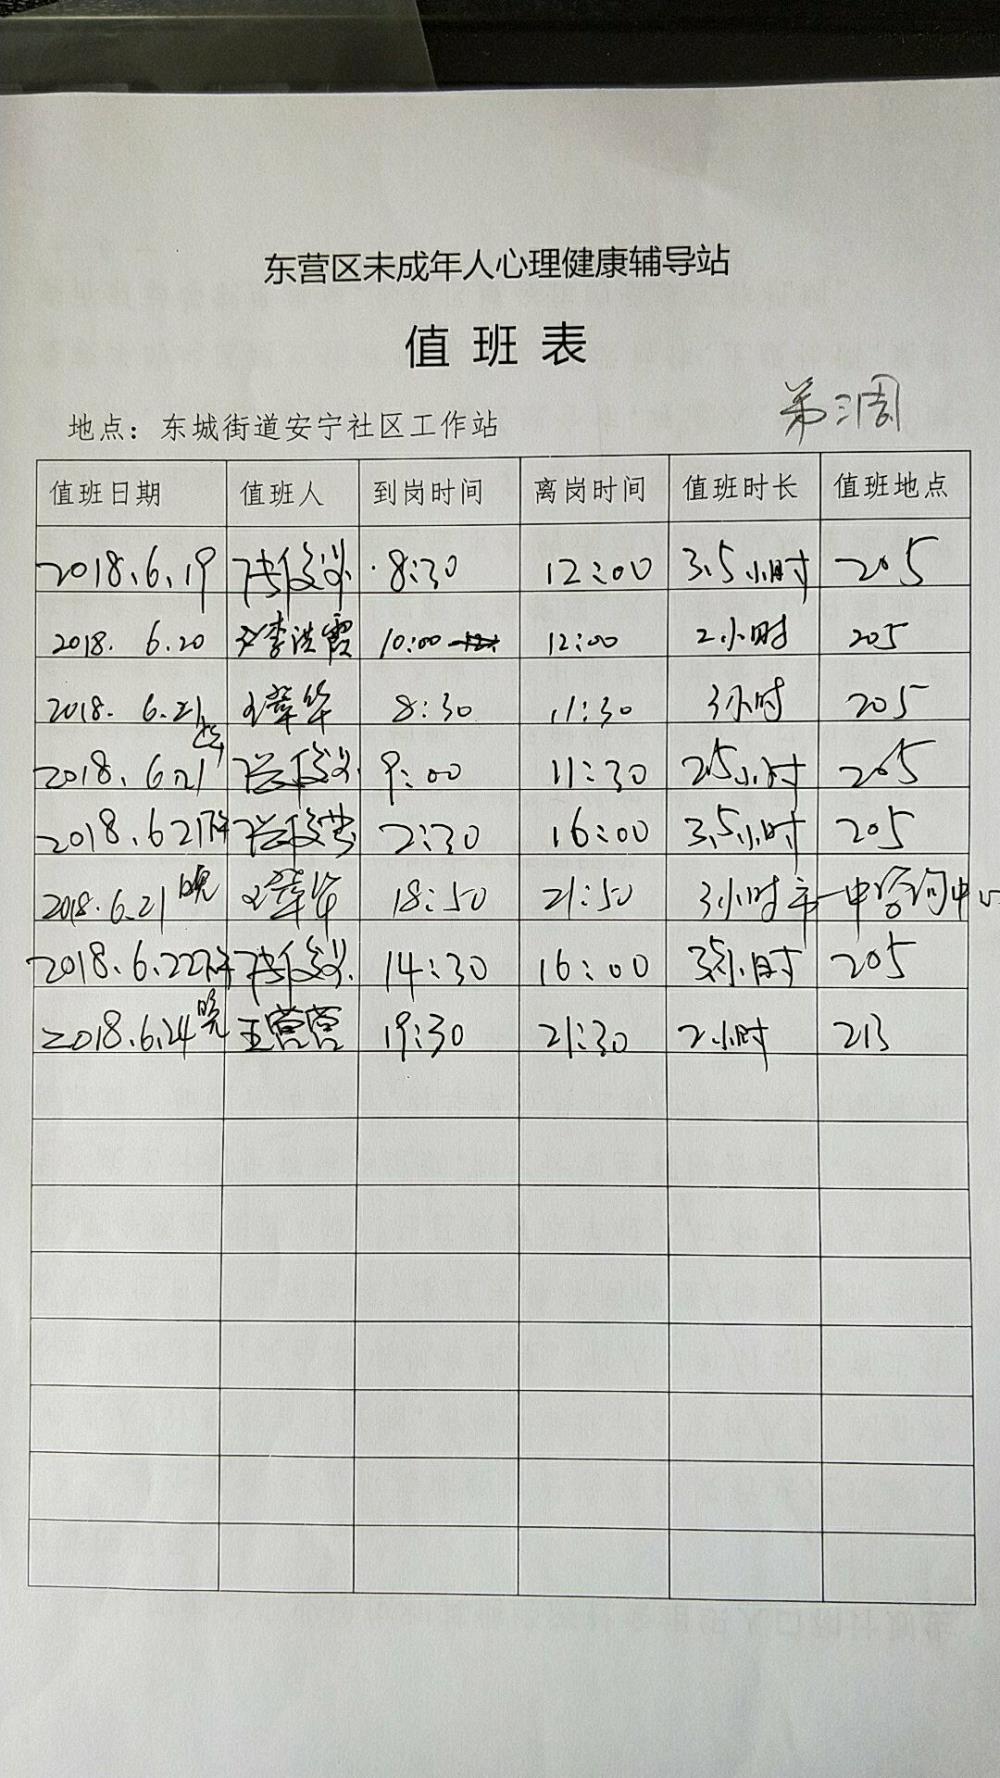 东营区未成年人心理健康辅导站
值班表
第三周
地点：东城街道安宁社区工作站
值班日期 值班人 到岗时间 离岗时间 值班时长 值班地点
2018.6.19 8:30 12:00 3.5小时 205
2018. 6.20 李洪霞 10:00 12:00 2小时 205
2018. 6.21 8:30 11:30 3小时 205
2018.6.21 9:00 11:30 2.5小时 205
2018.6.21下午 2:30 16:00 3.5小时 205
2018.6.21晚 18:50 21:50 3小时 市一中咨询中心
2018.6.22下午 14:30 16:00 3.5小时 205
2018.6.24晚 王营营 19:30 21:30 2小时 213